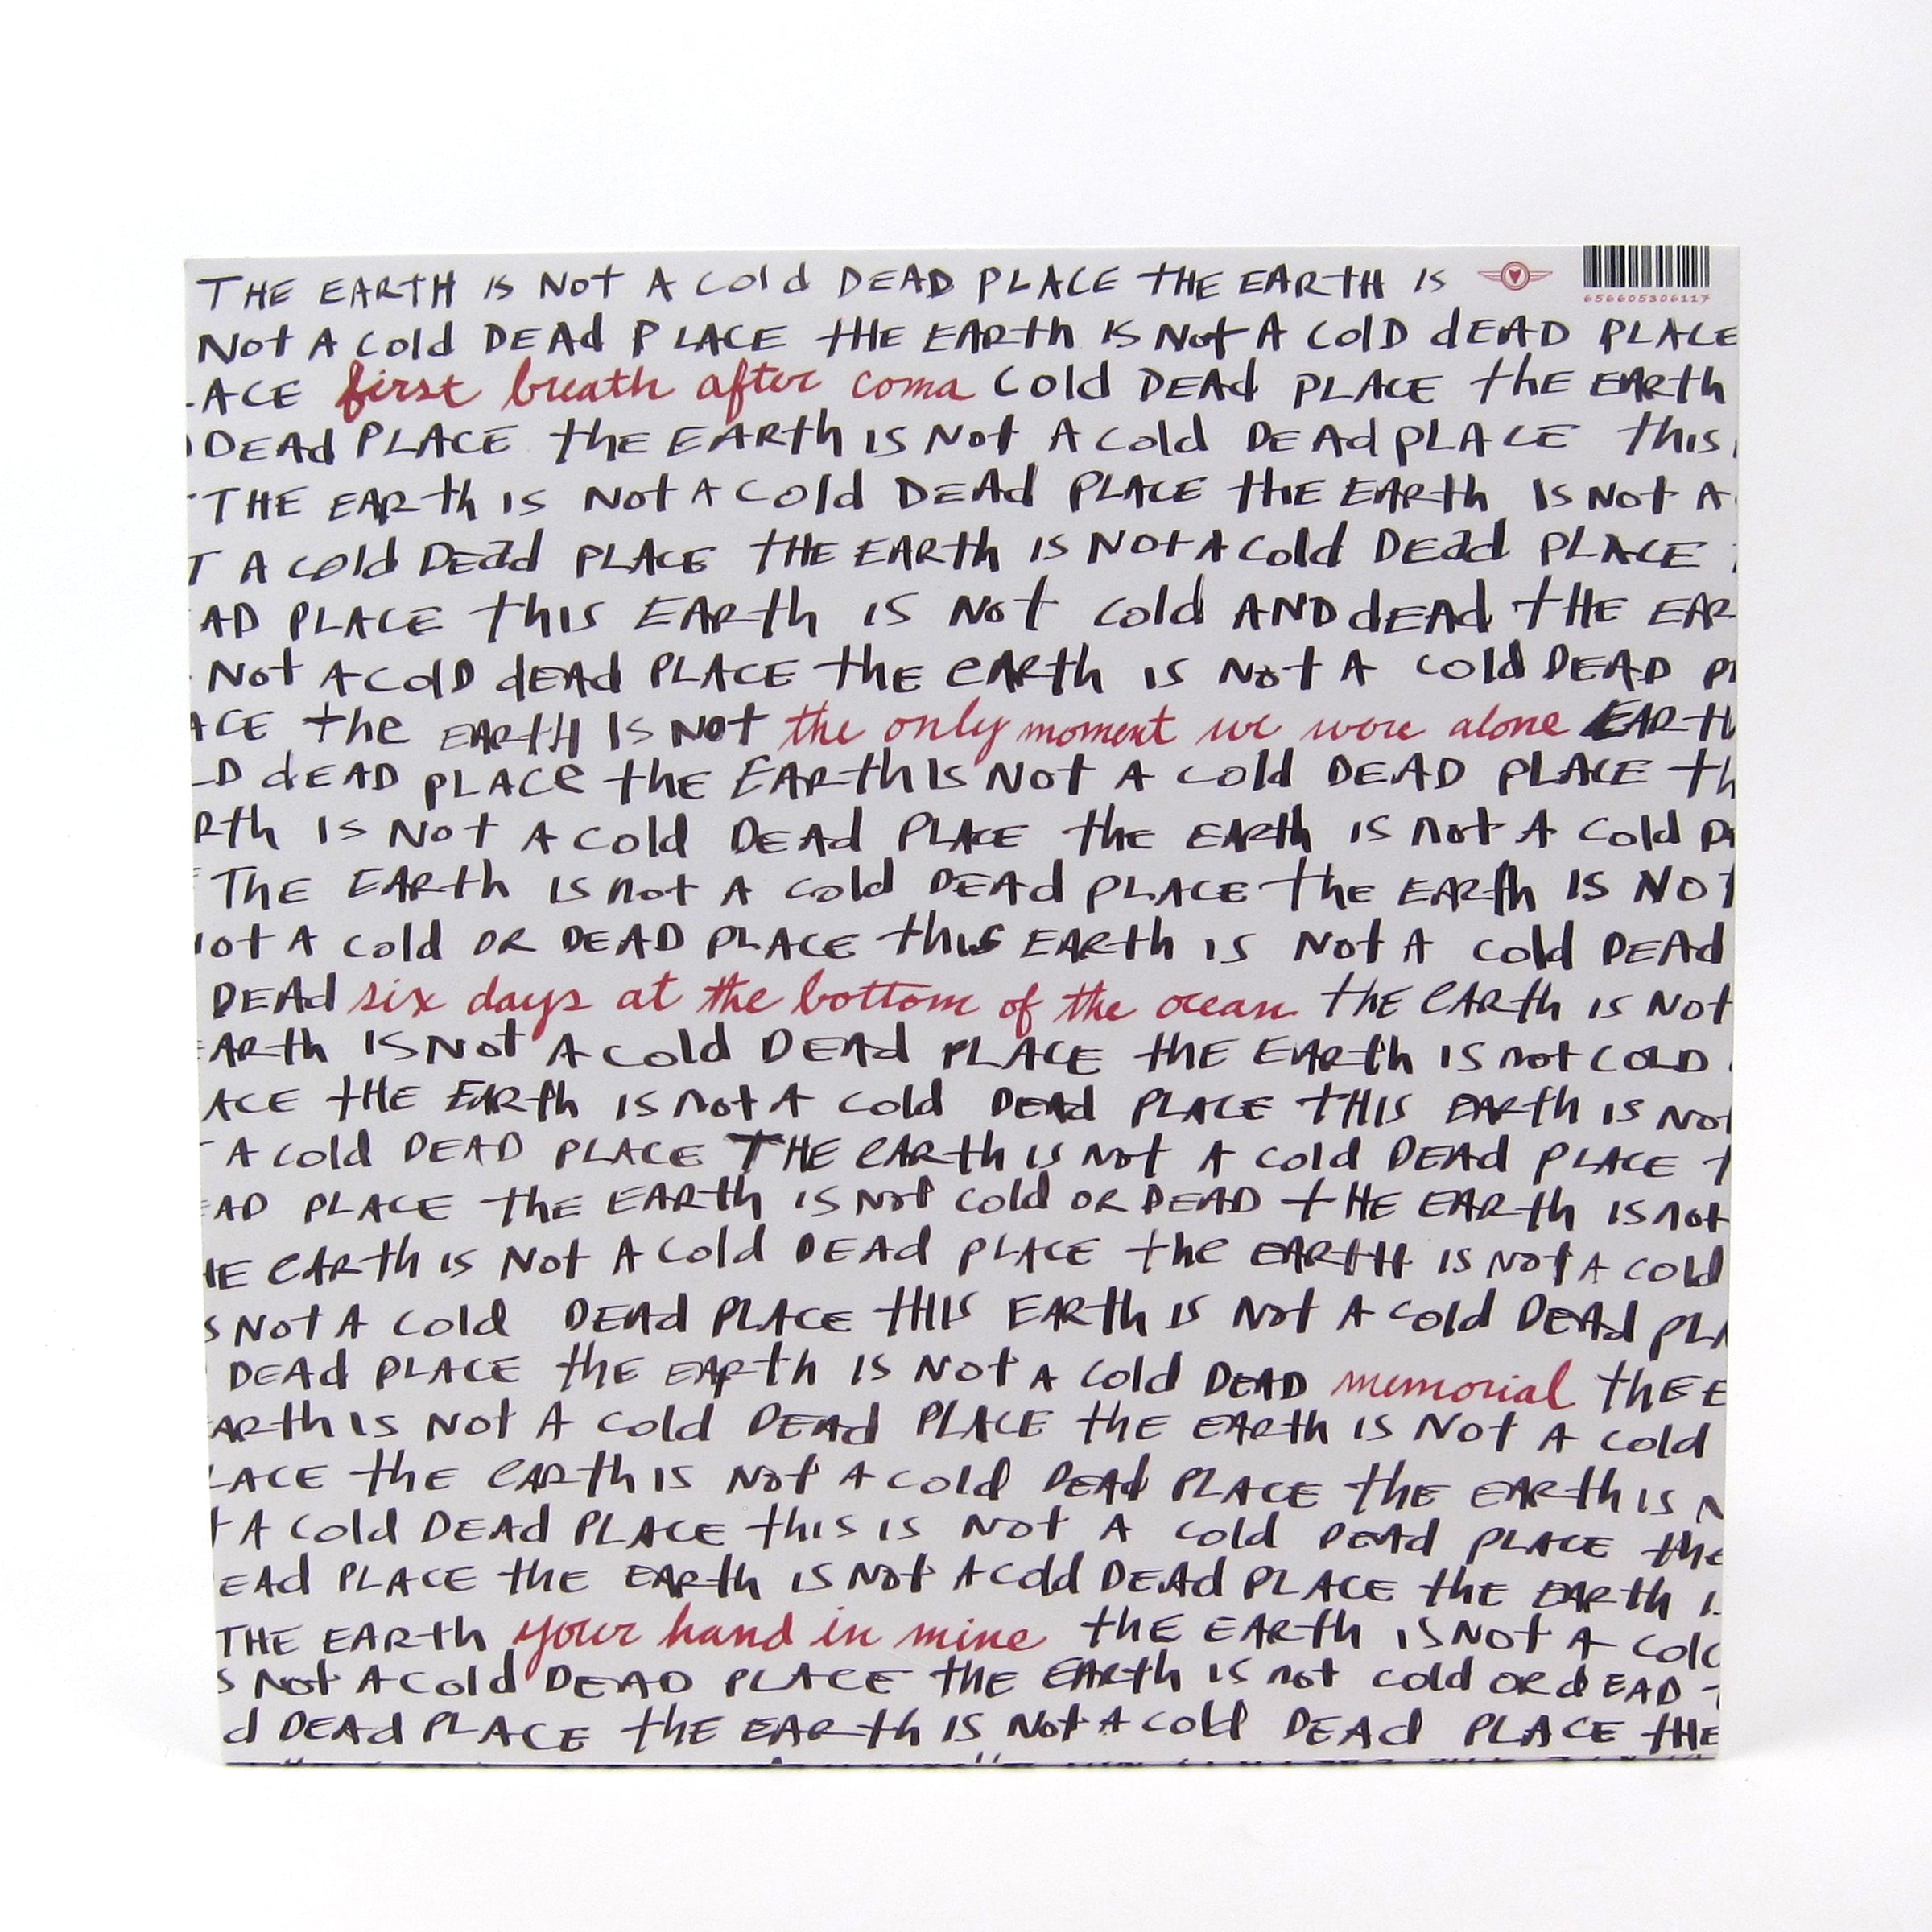 THE EARTH IS NOT A Cold DEAD PLACE THE EARTH IS
656605306117
Not A Cold DEAd PLACE tHE EARth IS Not A ColD dEAD PLACE
ACE first breath after coma Cold DEAd PLACE thE EARth
DEAd PLACE thE EARth IS Not A Cold DEAd PLACE this
THE EARth IS Not A Cold DEAd PLACE tHE EARth IS Not A
T A Cold DEad PLACE tHE EARth IS Not A Cold DEad PLACE
AD PLACE this EARth IS Not Cold AND dEAd tHE EAR
Not A ColD dEAd PLACE thE eARth IS Not A Cold DEAD PL
ACE the EARtH IS Not the only moment we were alone EARtH
LD dEAD PLACe thE EARth IS Not A Cold DEAD PLACE th
Rth IS Not A Cold DEAd PLACE thE EARth IS not A Cold D
ThE EARth IS not A Cold DEAd PLACE thE EARth IS NOT
ot A Cold OR DEAD PLACE this EARth IS Not A Cold DEAd
DEAd six days at the bottom of the ocean thE eARth IS Not
EARth IS Not A Cold DEAd PLACE thE EARth IS not COLD
ACE tHE EARth IS not A Cold DEAd PLACE tHIS EARth IS Not
A Cold DEAD PLACE THE eARth IS Not A Cold DEAd PLACE t
EAD PLACE thE EARth IS Not Cold OR DEAD tHE EARth IS not
HE eARth IS Not A Cold DEAd PLACE the EARtH IS Not A Cold
S Not A Cold DEAd PLACE tHIS EARth IS Not A Cold DEAd PLA
DEAd PLACE thE EARth IS Not A Cold DEAD memorial thE E
ARth IS Not A Cold DEAd PLACE thE EARth IS Not A Cold
LACE thE eARth IS Not A Cold DEAd PLACE thE EARth IS N
t A Cold DEAd PLACE this IS Not A Cold DEAd PLACE the
EAd PLACE thE EARth IS Not A Cold DEAd PLACE thE EARth I
THE EARth your hand in mine thE EARth IS Not A Cold
S Not A Cold DEAD PLACE thE EARth IS not Cold OR dEAD
d DEAd PLACE thE EARth IS Not A Cold DEAd PLACE tHE